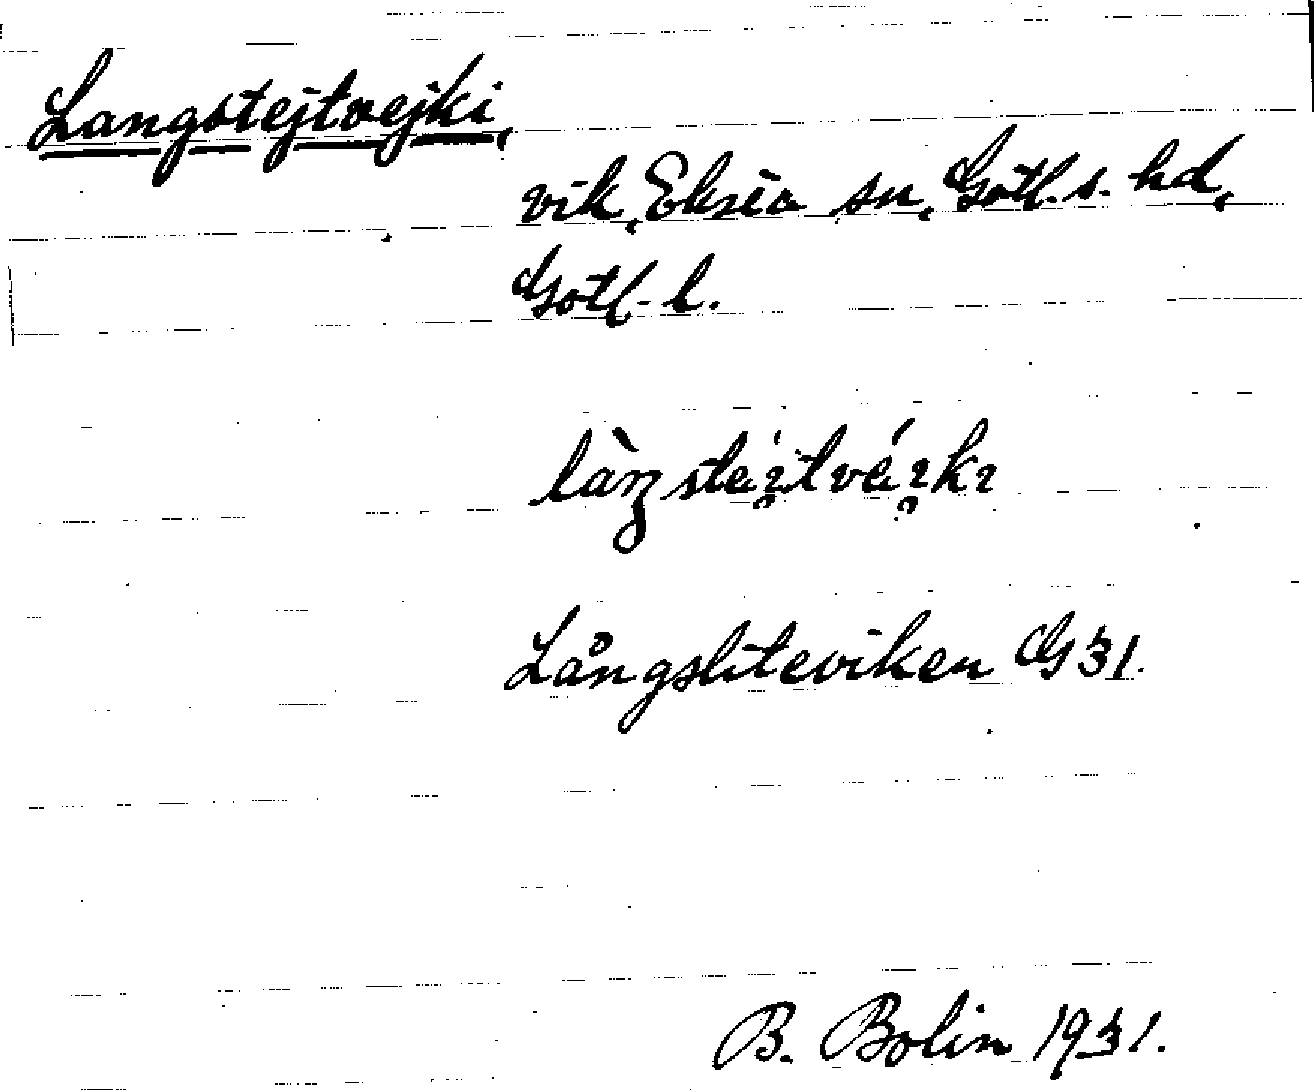 Langstejtvejki,
vik, Eksta sn, Gotl. s. hd,
Gotl. l.
Långsliteviken G 31.
B. Bolin 1931.